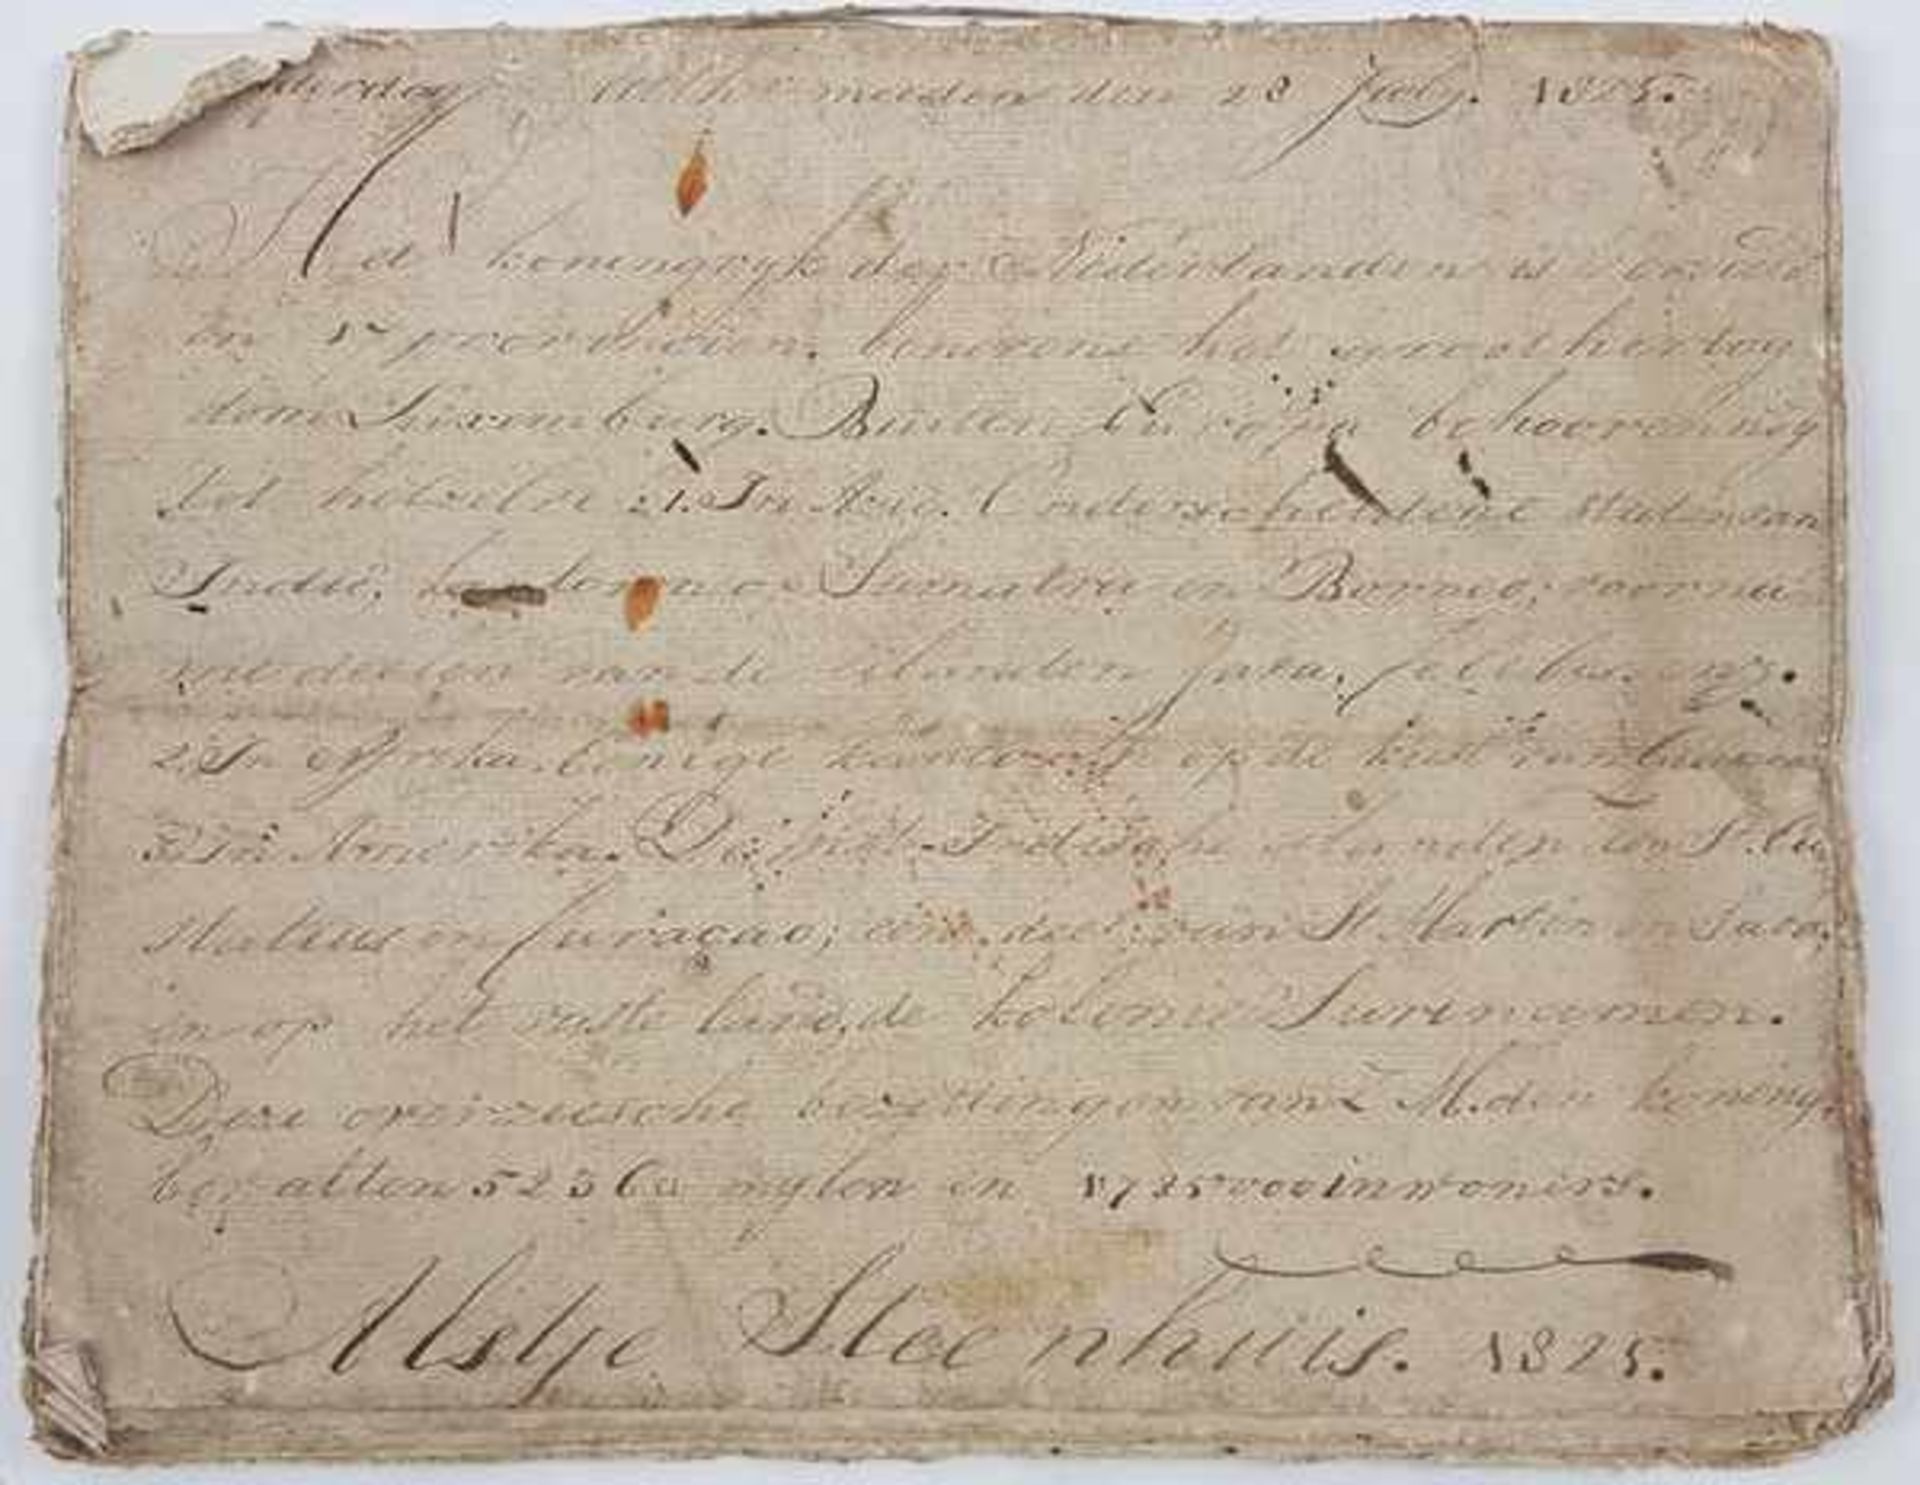 den 28 July. 1825.
Het koningryk der Nederlanden is verdeeld
in 17 provintien, benevens het groot hertog
dom Luxemburg. Buiten Europa behooren nog
tot hetzelve 1. In Azie. Onderscheidene staten van
Indie, Sumatra en Borneo; voorna
me deelen van de eilanden Java, Celebes, enz.
2. In Afrika. Eenige kantoren op de kust van Guinea
3. In Amerika. De West-Indische eilanden St. Eu
statius en Curaçao; een deel van St. Martin en Saba,
en op het vaste land, de kolonie Surinamen.
Deze overzeesche bezittingen van Z. M. den koning,
bevatten 52360 mylen en 1735000 inwoners.
Alstje Steenhuis. 1825.